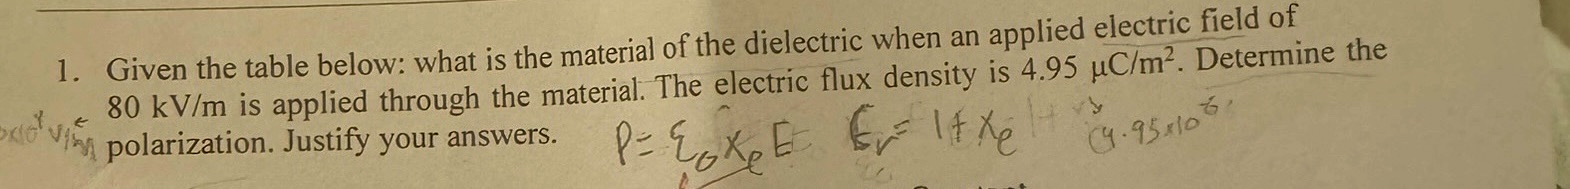 1. Given the table below: what is the material of the dielectric when an applied electric field of
80 kV/m is applied through the material. The electric flux density is 4.95 μC/m². Determine the
polarization. Justify your answers.
P = ε₀ χₑ E εᵣ = 1 + χₑ